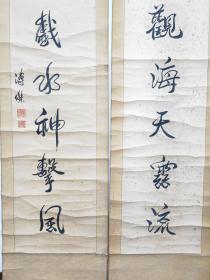 觀海天霞流
戲水神擊風
溥傑